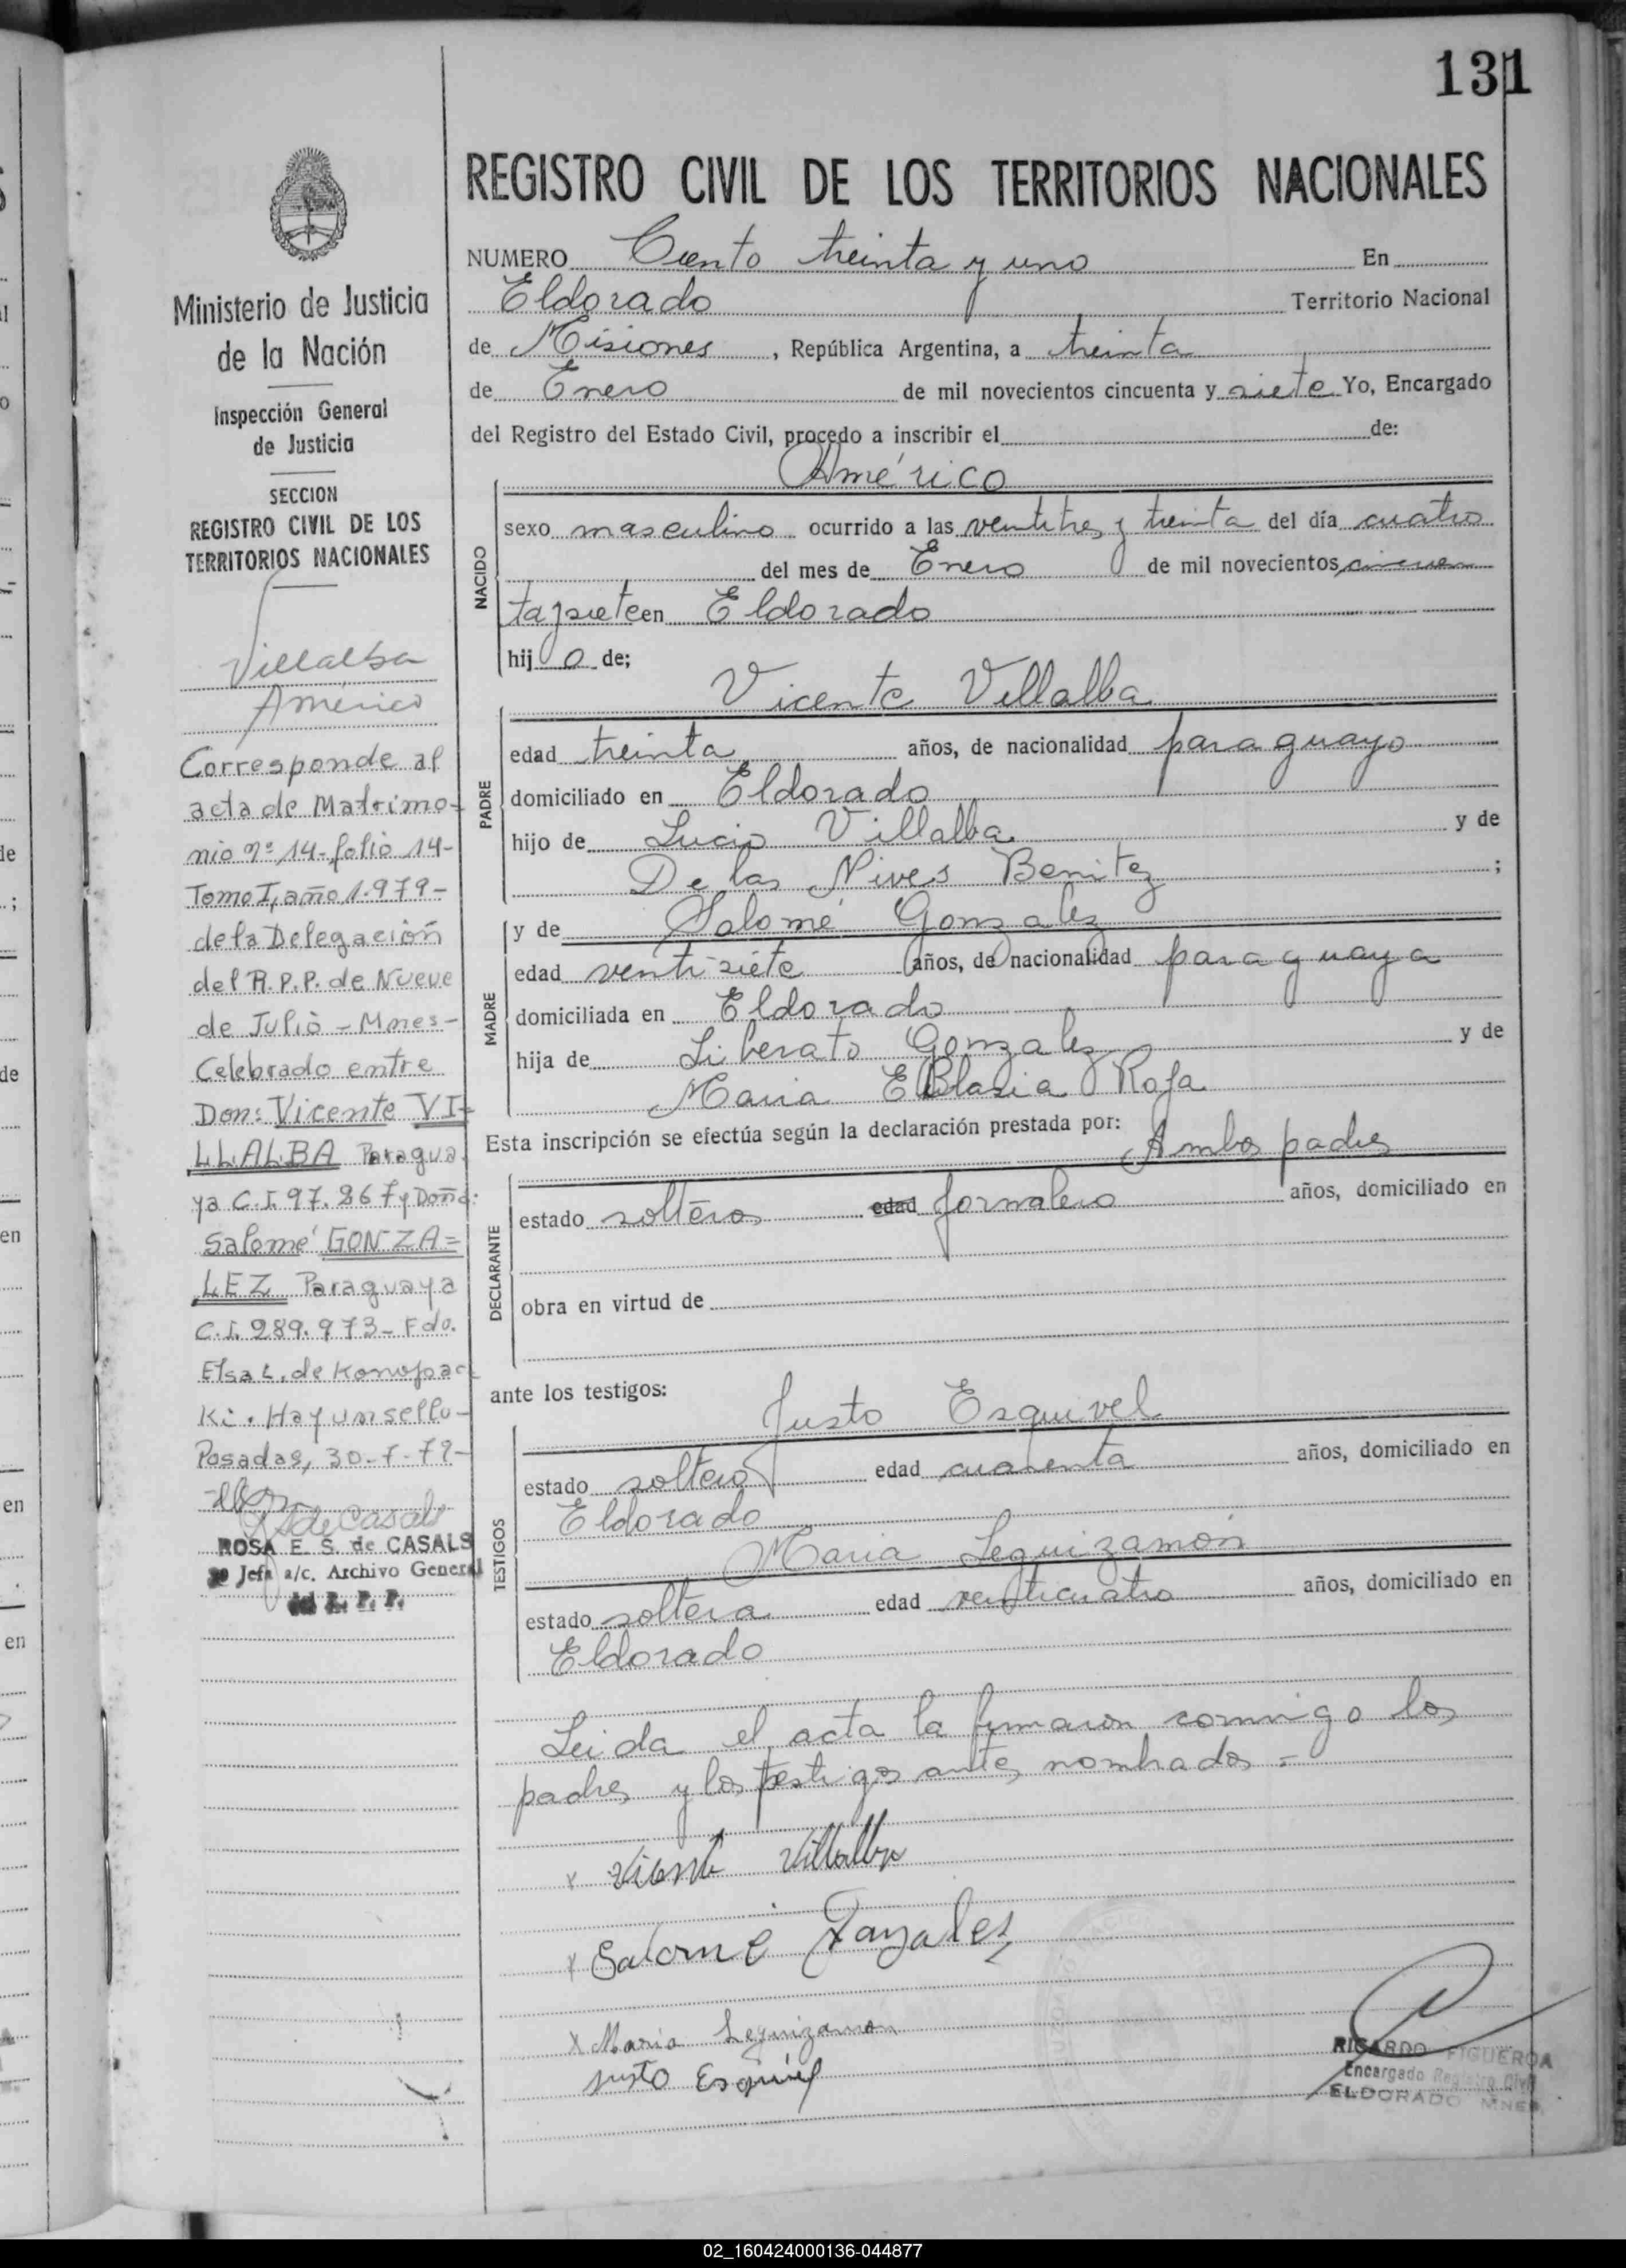 131
REGISTRO CIVIL DE LOS TERRITORIOS NACIONALES
NUMERO Ciento treinta y uno En
Eldorado Territorio Nacional
de Misiones, República Argentina, a treinta
de Enero de mil novecientos cincuenta y siete Yo, Encargado
del Registro del Estado Civil, procedo a inscribir el de:
Américo
NACIDO
sexo masculino ocurrido a las ventitres y treinta del día cuatro
del mes de Enero de mil novecientos cincuen
ta y siete en Eldorado
hijo de;
Vicente Villalba
PADRE
edad treinta años, de nacionalidad paraguayo
domiciliado en Eldorado
hijo de Lucio Villalba y de
De las Nives Benitez ;
MADRE
y de Salomé Gonzalez
edad ventisiete años, de nacionalidad paraguaya
domiciliada en Eldorado
hija de Liberato Gonzalez y de
Maria Blasia Roja
Esta inscripción se efectúa según la declaración prestada por:
Ambos padres
DECLARANTE
estado solteros edad jornalero años, domiciliado en
obra en virtud de
ante los testigos:
Justo Esquivel
TESTIGOS
estado soltero edad cuarenta años, domiciliado en
Eldorado
Maria Leguizamón
estado soltera edad venticuatro años, domiciliado en
Eldorado
Leida el acta la firmaron conmigo los
padres y los testigos antes nombrados =
x Vicente Villalba
x Salomé Gonzales
x Maria Leguizamon
Justo Esquivel
RICARDO FIGUEROA
Encargado Registro Civil
ELDORADO MNES.
Ministerio de Justicia
de la Nación
Inspección General
de Justicia
SECCION
REGISTRO CIVIL DE LOS
TERRITORIOS NACIONALES
Villalba
Américo
Corresponde al
acta de Matrimo-
nio nº 14-folio 14-
Tomo I, año 1.979-
de la Delegación
del R.P.P. de Nueve
de Julio - Mnes-
Celebrado entre
Don: Vicente VI-
LLALBA Paragua
ya C.I. 97.267 y Doña:
Salomé GONZA=
LEZ Paraguaya
C.I. 289.973- Fdo.
Elsa L. de Konopac
Ki. Hay un sello-
Posadas, 30-7-79-
ROSA E. S. de CASALS
Jefa a/c. Archivo General
del R. P. P.
02_160424000136-044877